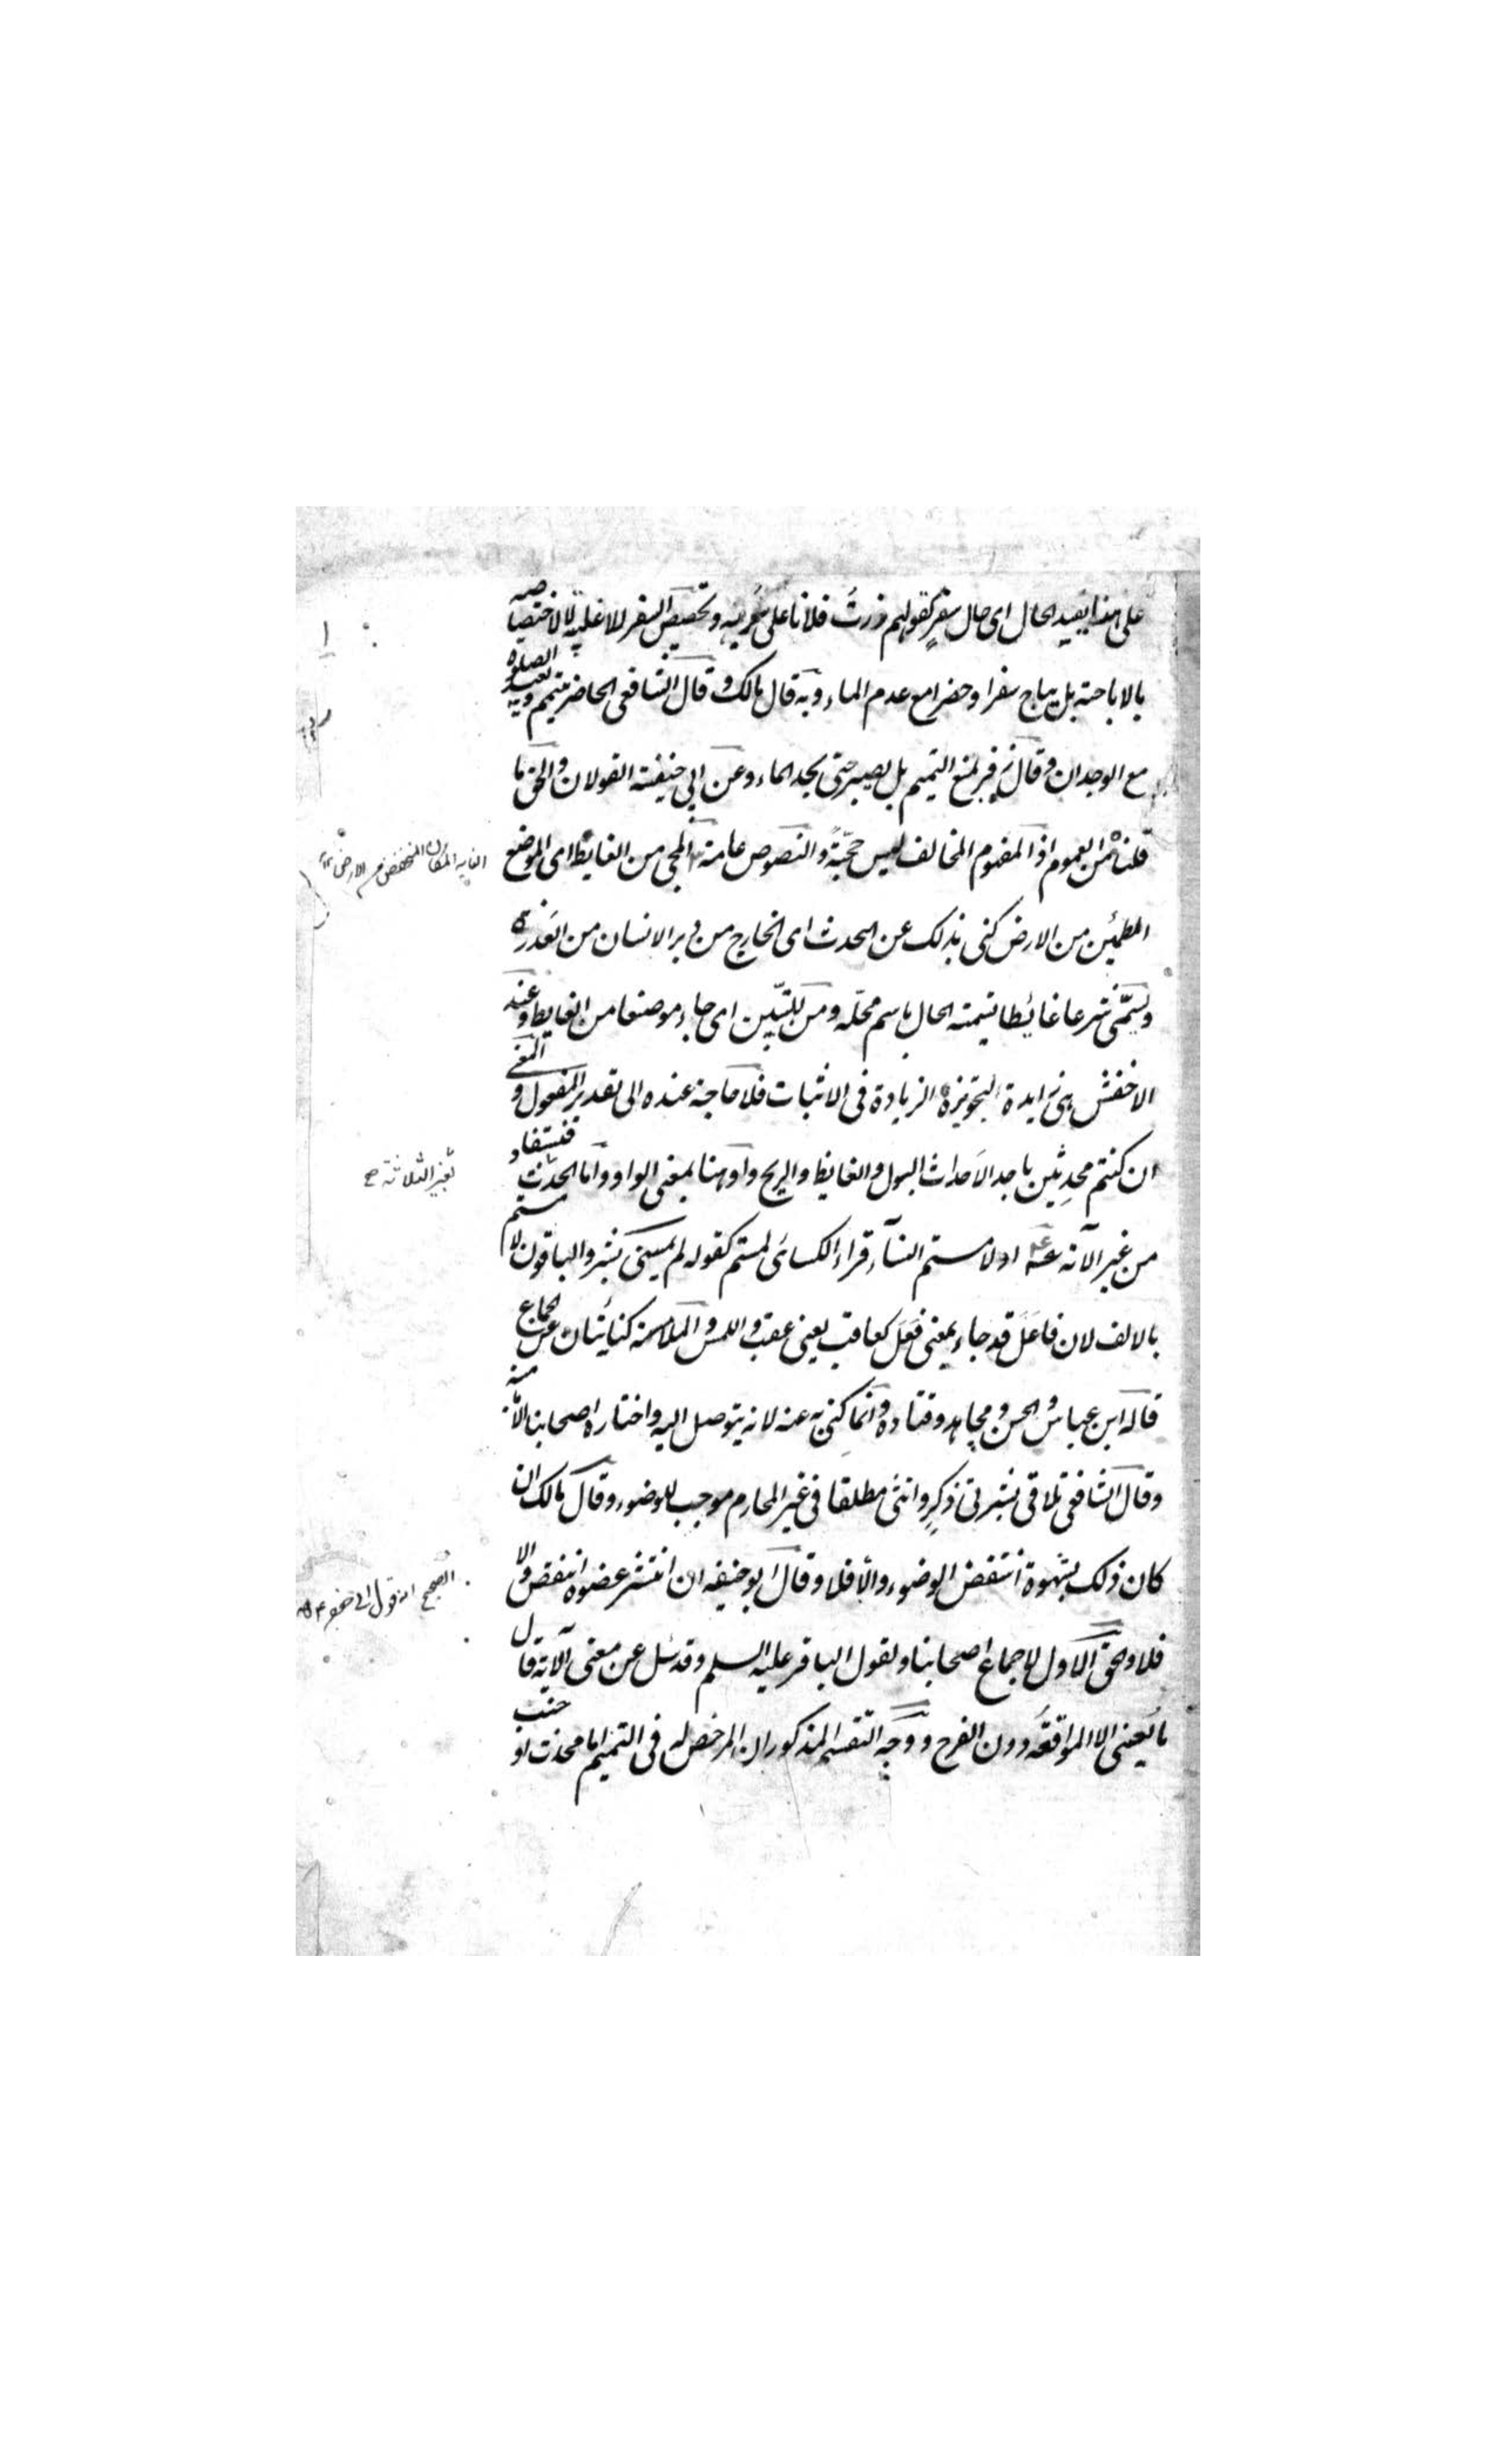 على هذا يفيد الحال اى حال سفر كقولهم زرت فلانا على شربه وتخصيص السفر للاغلبية لا لاختصاصه
بالاباحة بل يباح سفرا وحضرا مع عدم الماء وبه قال مالك وقال الشافعى الحاضر يتيمم ويعيد الصلوة
مع الوجدان وقال زفر بمنع التيمم بل يصبر حتى يجد الماء وعن ابي حنيفة القولان والحق ما
قلناه من العموم اذ المفهوم المخالف ليس حجة والنصوص عامة المجى من الغايط اى الموضع
المطمئن من الارض كنى بذلك عن الحدث اى الخارج من دبر الانسان من العذرة
ويسمى شرعا غائطا تسمية الحال باسم محله ومن للتبيين اى جاء موضعا من الغايط وعند
الاخفش هى زايدة لتجويزه الزيادة فى الاثبات فلا حاجة عنده الى تقدير المفعول والمعنى
ان كنتم محدثين باحد الاحداث البول والغايط والريح واو هنا بمعنى الواو واما الحدث فتستفاد
من غير الآية او لامستم النساء قراء الكسائى لمستم كقوله لم يمسسنى بشر والباقون لامستم
بالالف لان فاعل قد جاء بمعنى فعل كعاقب بعنى عقب واللمس والملامسة كنايتان عن الجماع
قاله ابن عباس والحسن ومجاهد وقتادة وانما كنى به عنه لانه يتوصل اليه واختاره اصحابنا الامامية
وقال الشافعى تلاقى بشرتى ذكر وانثى مطلقا فى غير المحارم موجب للوضوء وقال مالك ان
كان ذلك بشهوة انتقض الوضوء والا فلا وقال ابو حنيفه ان انتشر عضوه انتقض والا
فلا والحق الاول لاجماع اصحابنا ولقول الباقر عليه السلم وقد سئل عن معنى الآية قال
ما يعنى الا المواقعة دون الفرج ووجه التقسيم المذكور ان المرخص له فى التيمم اما محدث او جنب
المكان المنخفض من الارض
الثلاثة
الصحيح ان قول